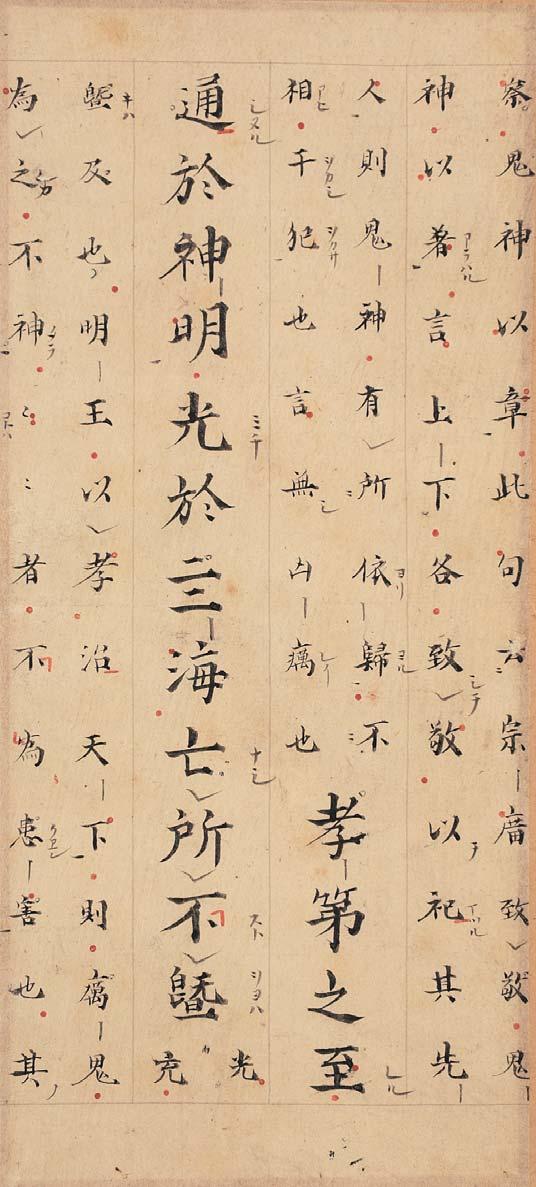 察鬼神以章此句云宗庿致敬鬼
神以著言上下各致敬以祀其先
人則鬼神有所依歸不
相干犯也言無凶癘也
孝第之至
通於神明光於亖海亡所不曁
光
充
曁及也明王以孝治天下則癘鬼
為之不神〻〻者不為患害也其